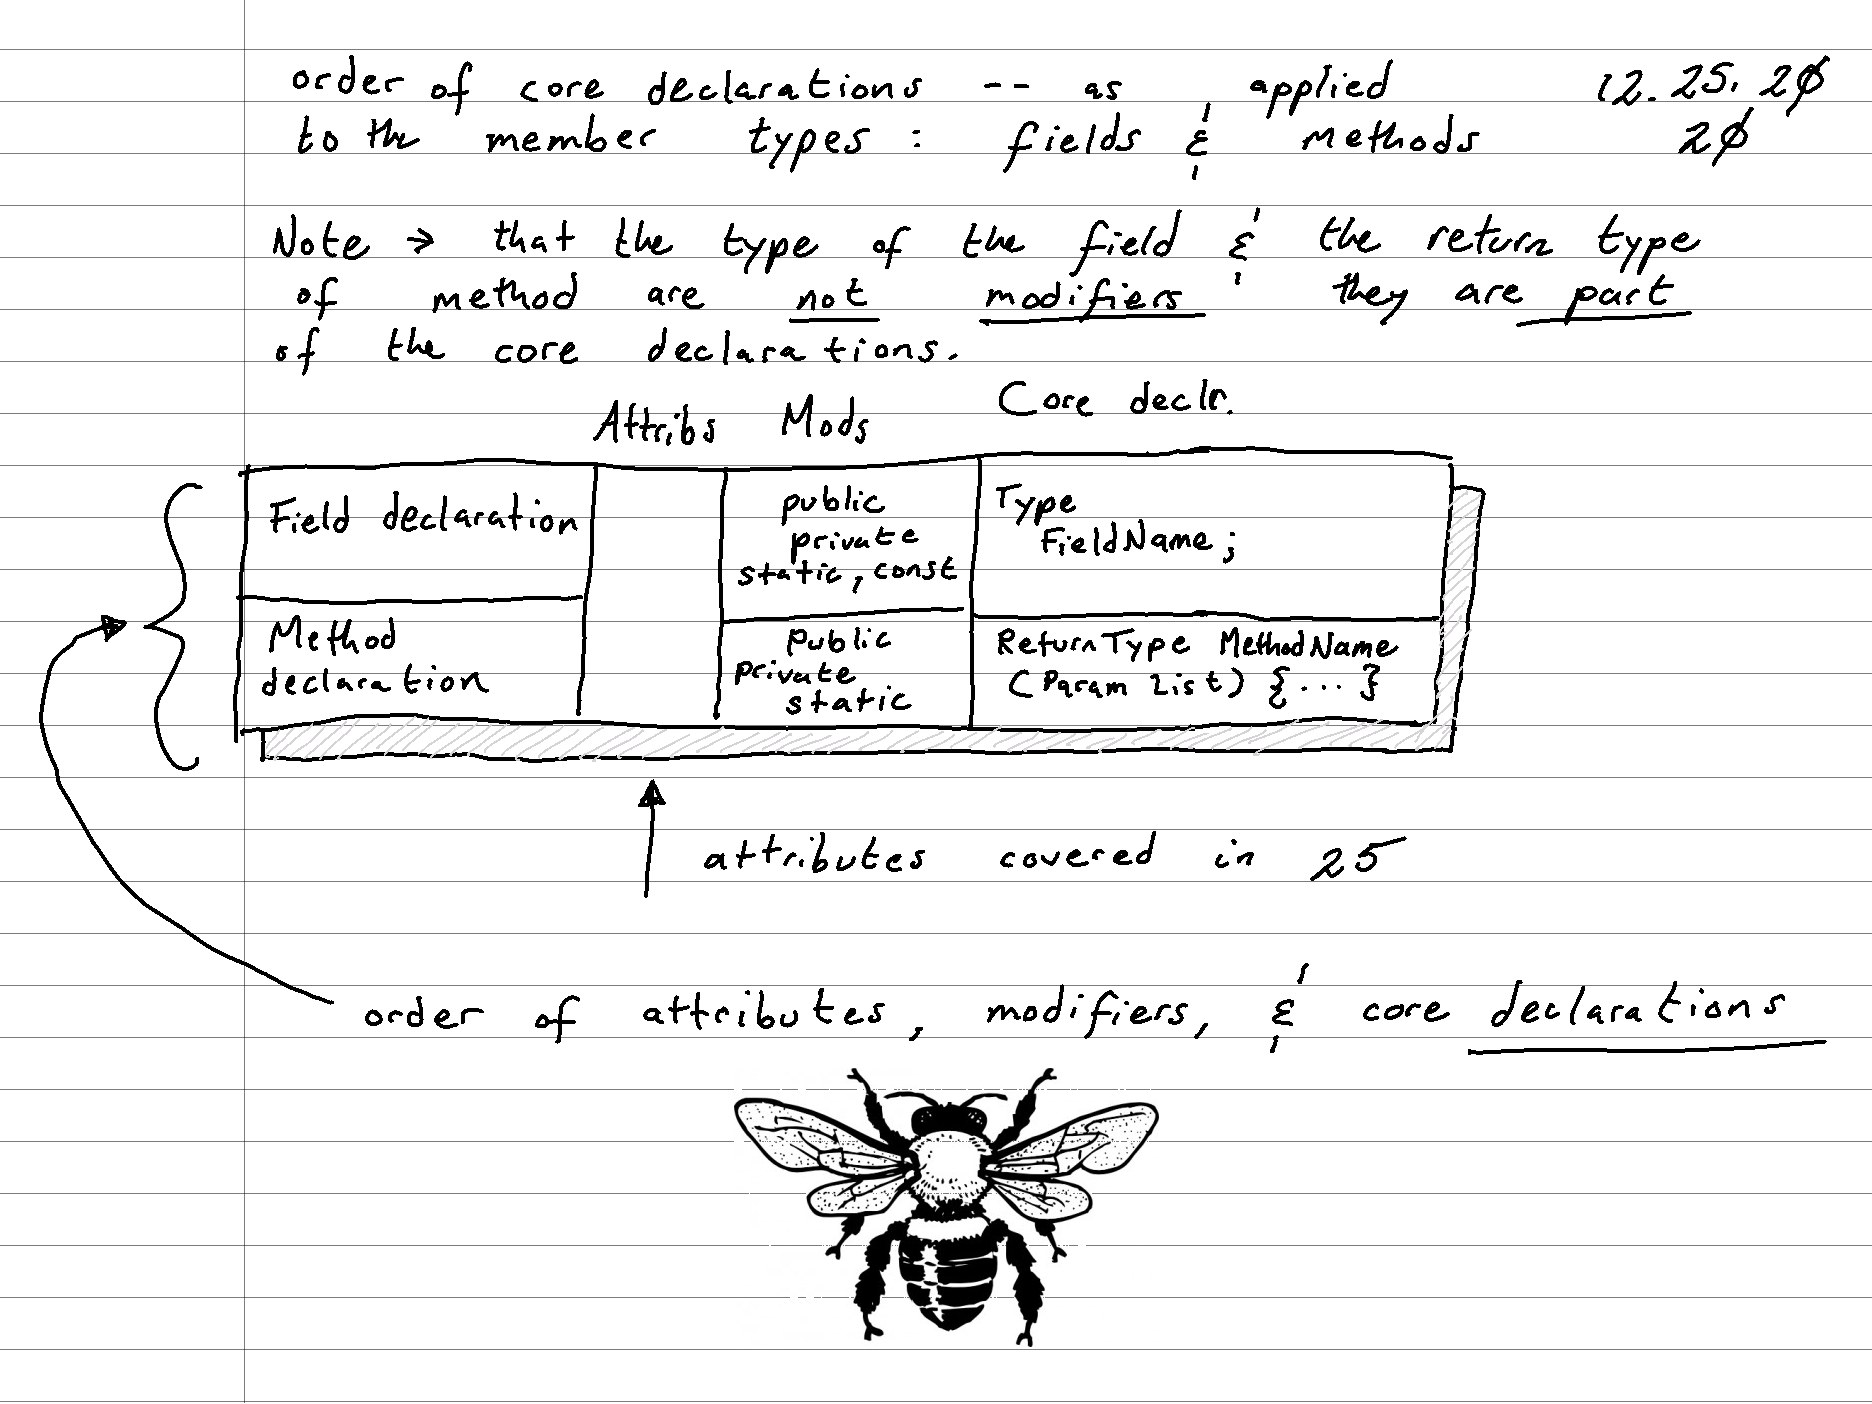 order of core declarations -- as applied 12.25.20
to the member types : fields & methods 20
Note → that the type of the field & the return type
of method are not modifiers they are part
of the core declarations.
Attribs Mods Core declr.
Field declaration
public
private
static, const
Type
FieldName;
Method
declaration
public
private
static
ReturnType MethodName
(Param List) {...}
attributes covered in 25
order of attributes, modifiers, & core declarations